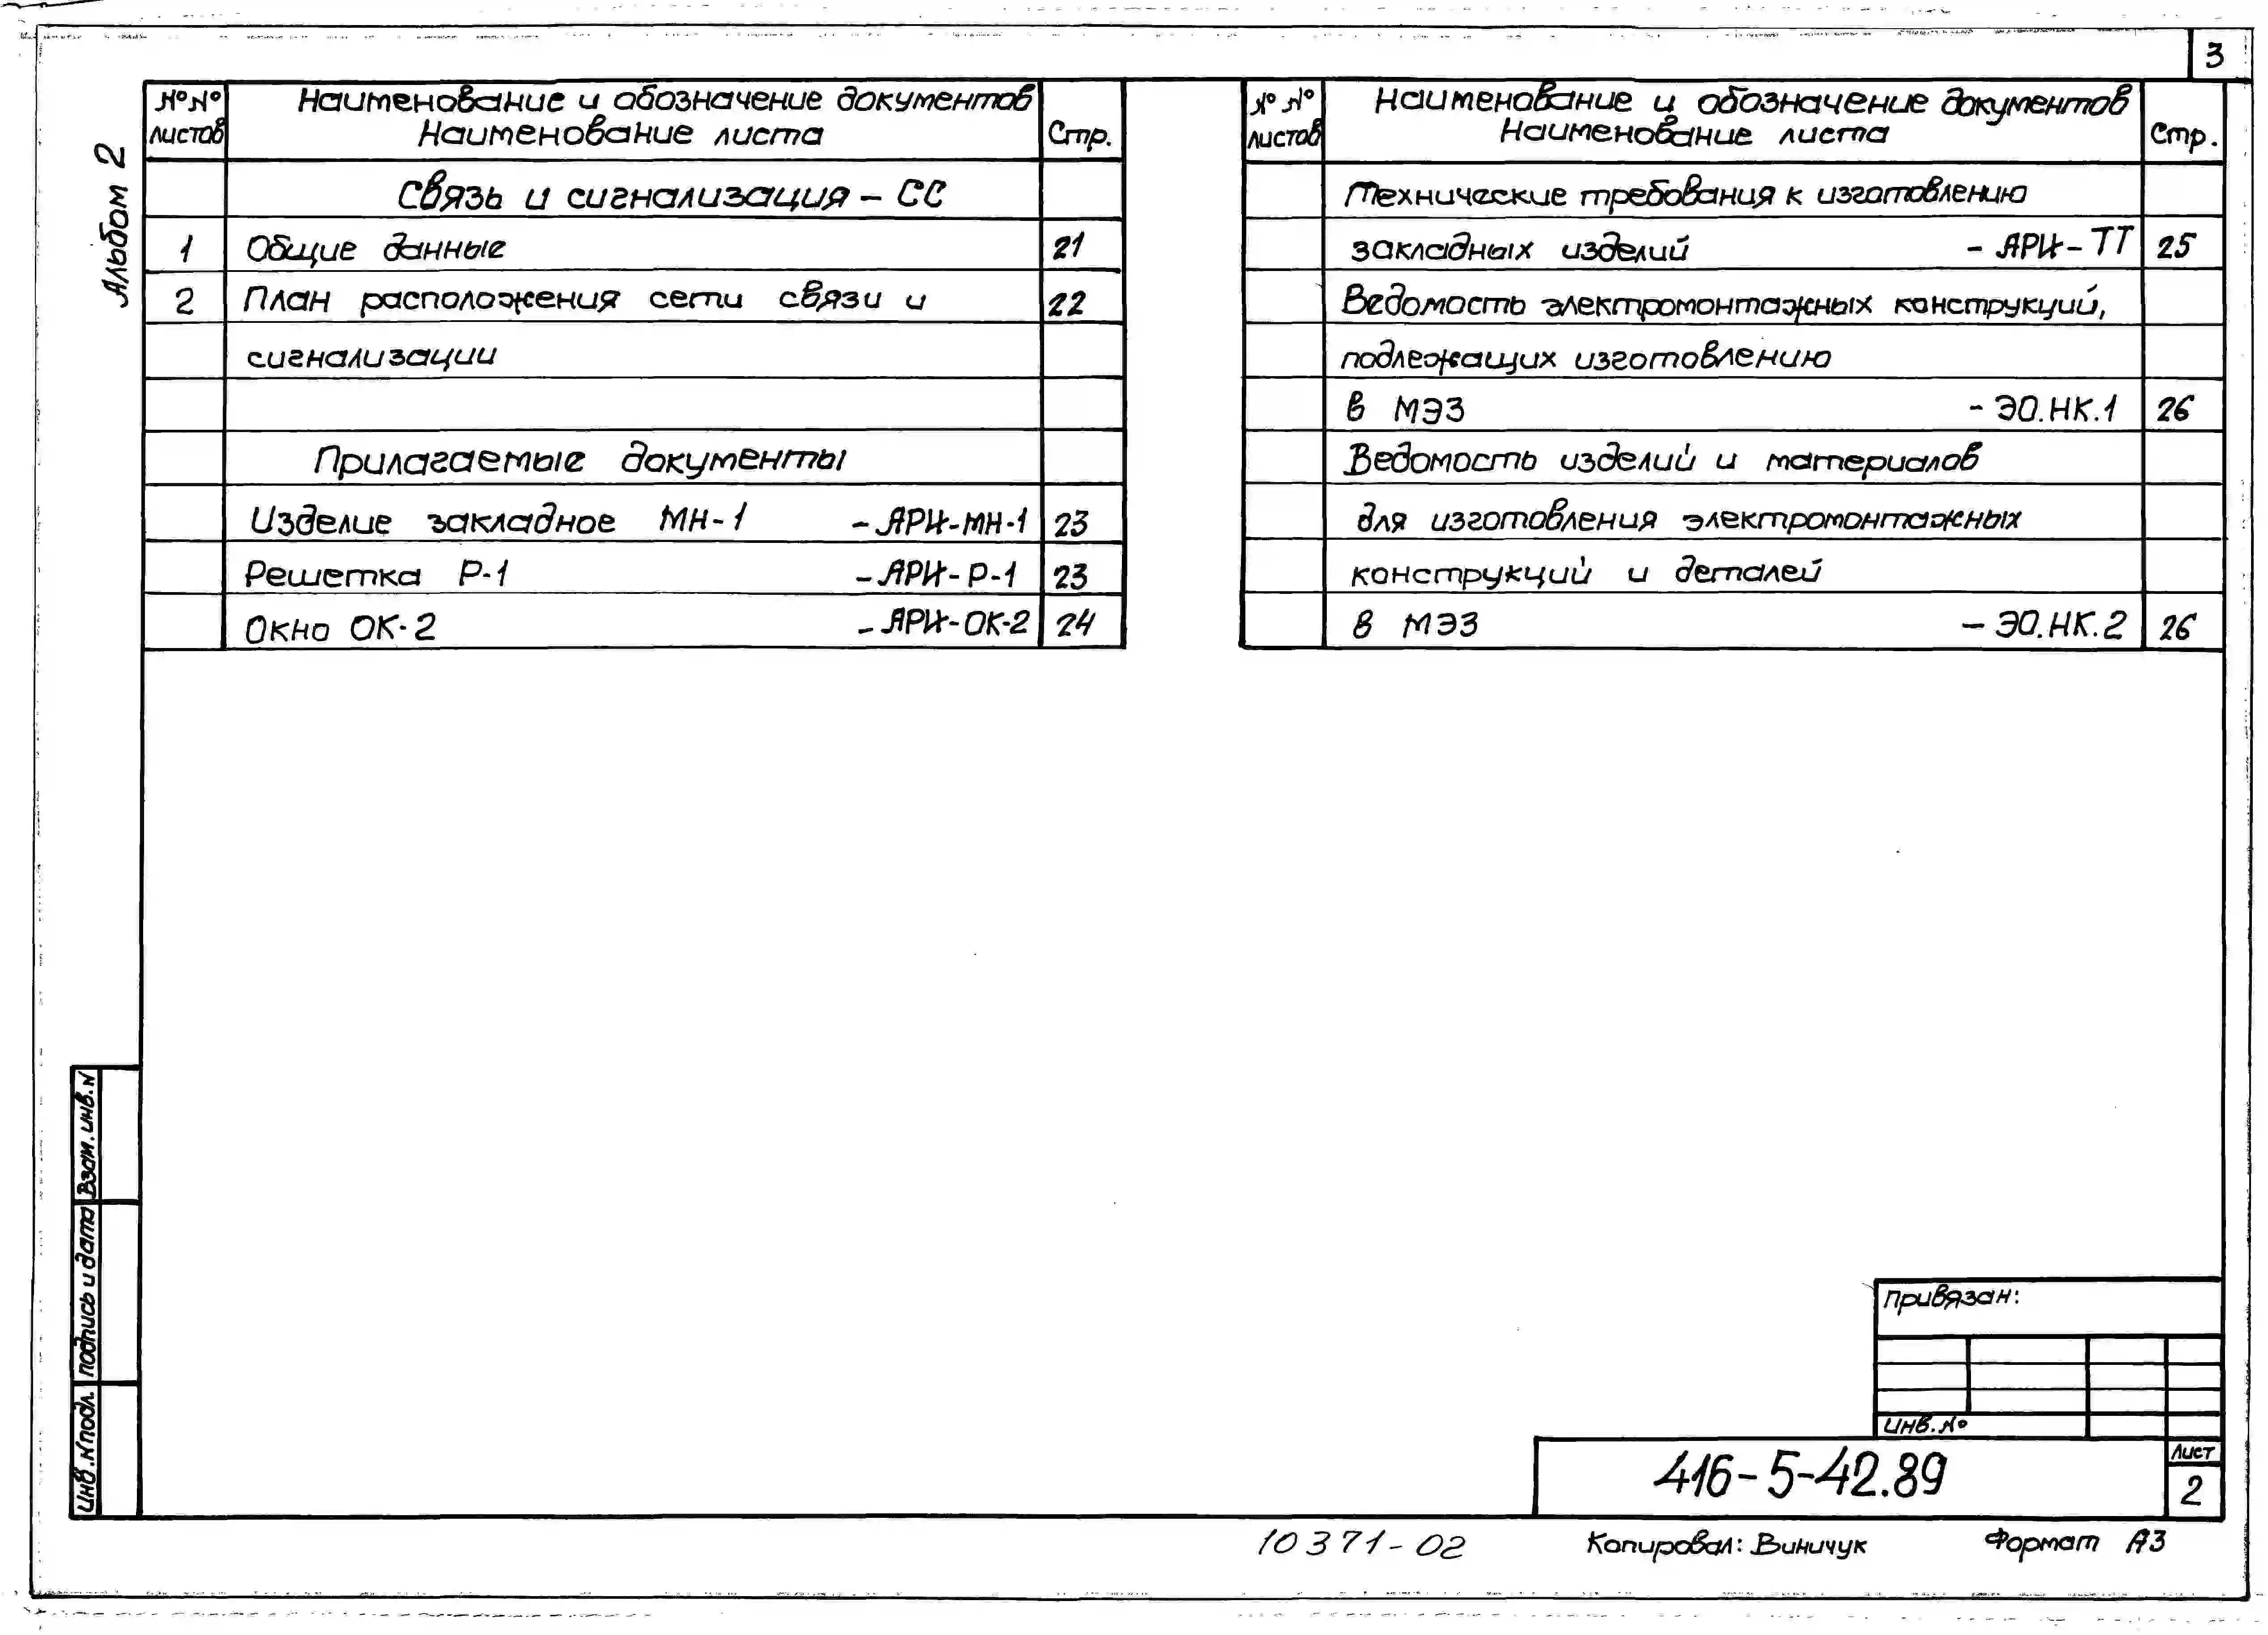 3
Альбом 2
№№ листов
Наименование и обозначение документов
Наименование листа
Стр.
Связь и сигнализация - СС
1 Общие данные 21
2 План расположения сети связи и 22
сигнализации
Прилагаемые документы
Изделие закладное МН-1 -АРИ-МН-1 23
Решетка Р-1 -АРИ-Р-1 23
Окно ОК-2 -АРИ-ОК-2 24
№№ листов
Наименование и обозначение документов
Наименование листа
Стр.
Технические требования к изготовлению
закладных изделий - АРИ-ТТ 25
Ведомость электромонтажных конструкций,
подлежащих изготовлению
в МЭЗ - ЭО.НК.1 26
Ведомость изделий и материалов
для изготовления электромонтажных
конструкций и деталей
в МЭЗ - ЭО.НК.2 26
Взам.инв.N
Подпись и дата
Инв.N подл.
Привязан:
Инв.№
416-5-42.89
Лист
2
10371-02
Копировал: Виничук
Формат А3